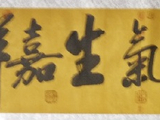 氣生嘉